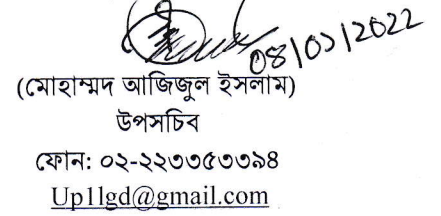 08/০১/2022
(মোহাম্মদ আজিজুল ইসলাম)
উপসচিব
ফোন: ০২-২২৩৩৫৩৩৯৪
Up1lgd@gmail.com